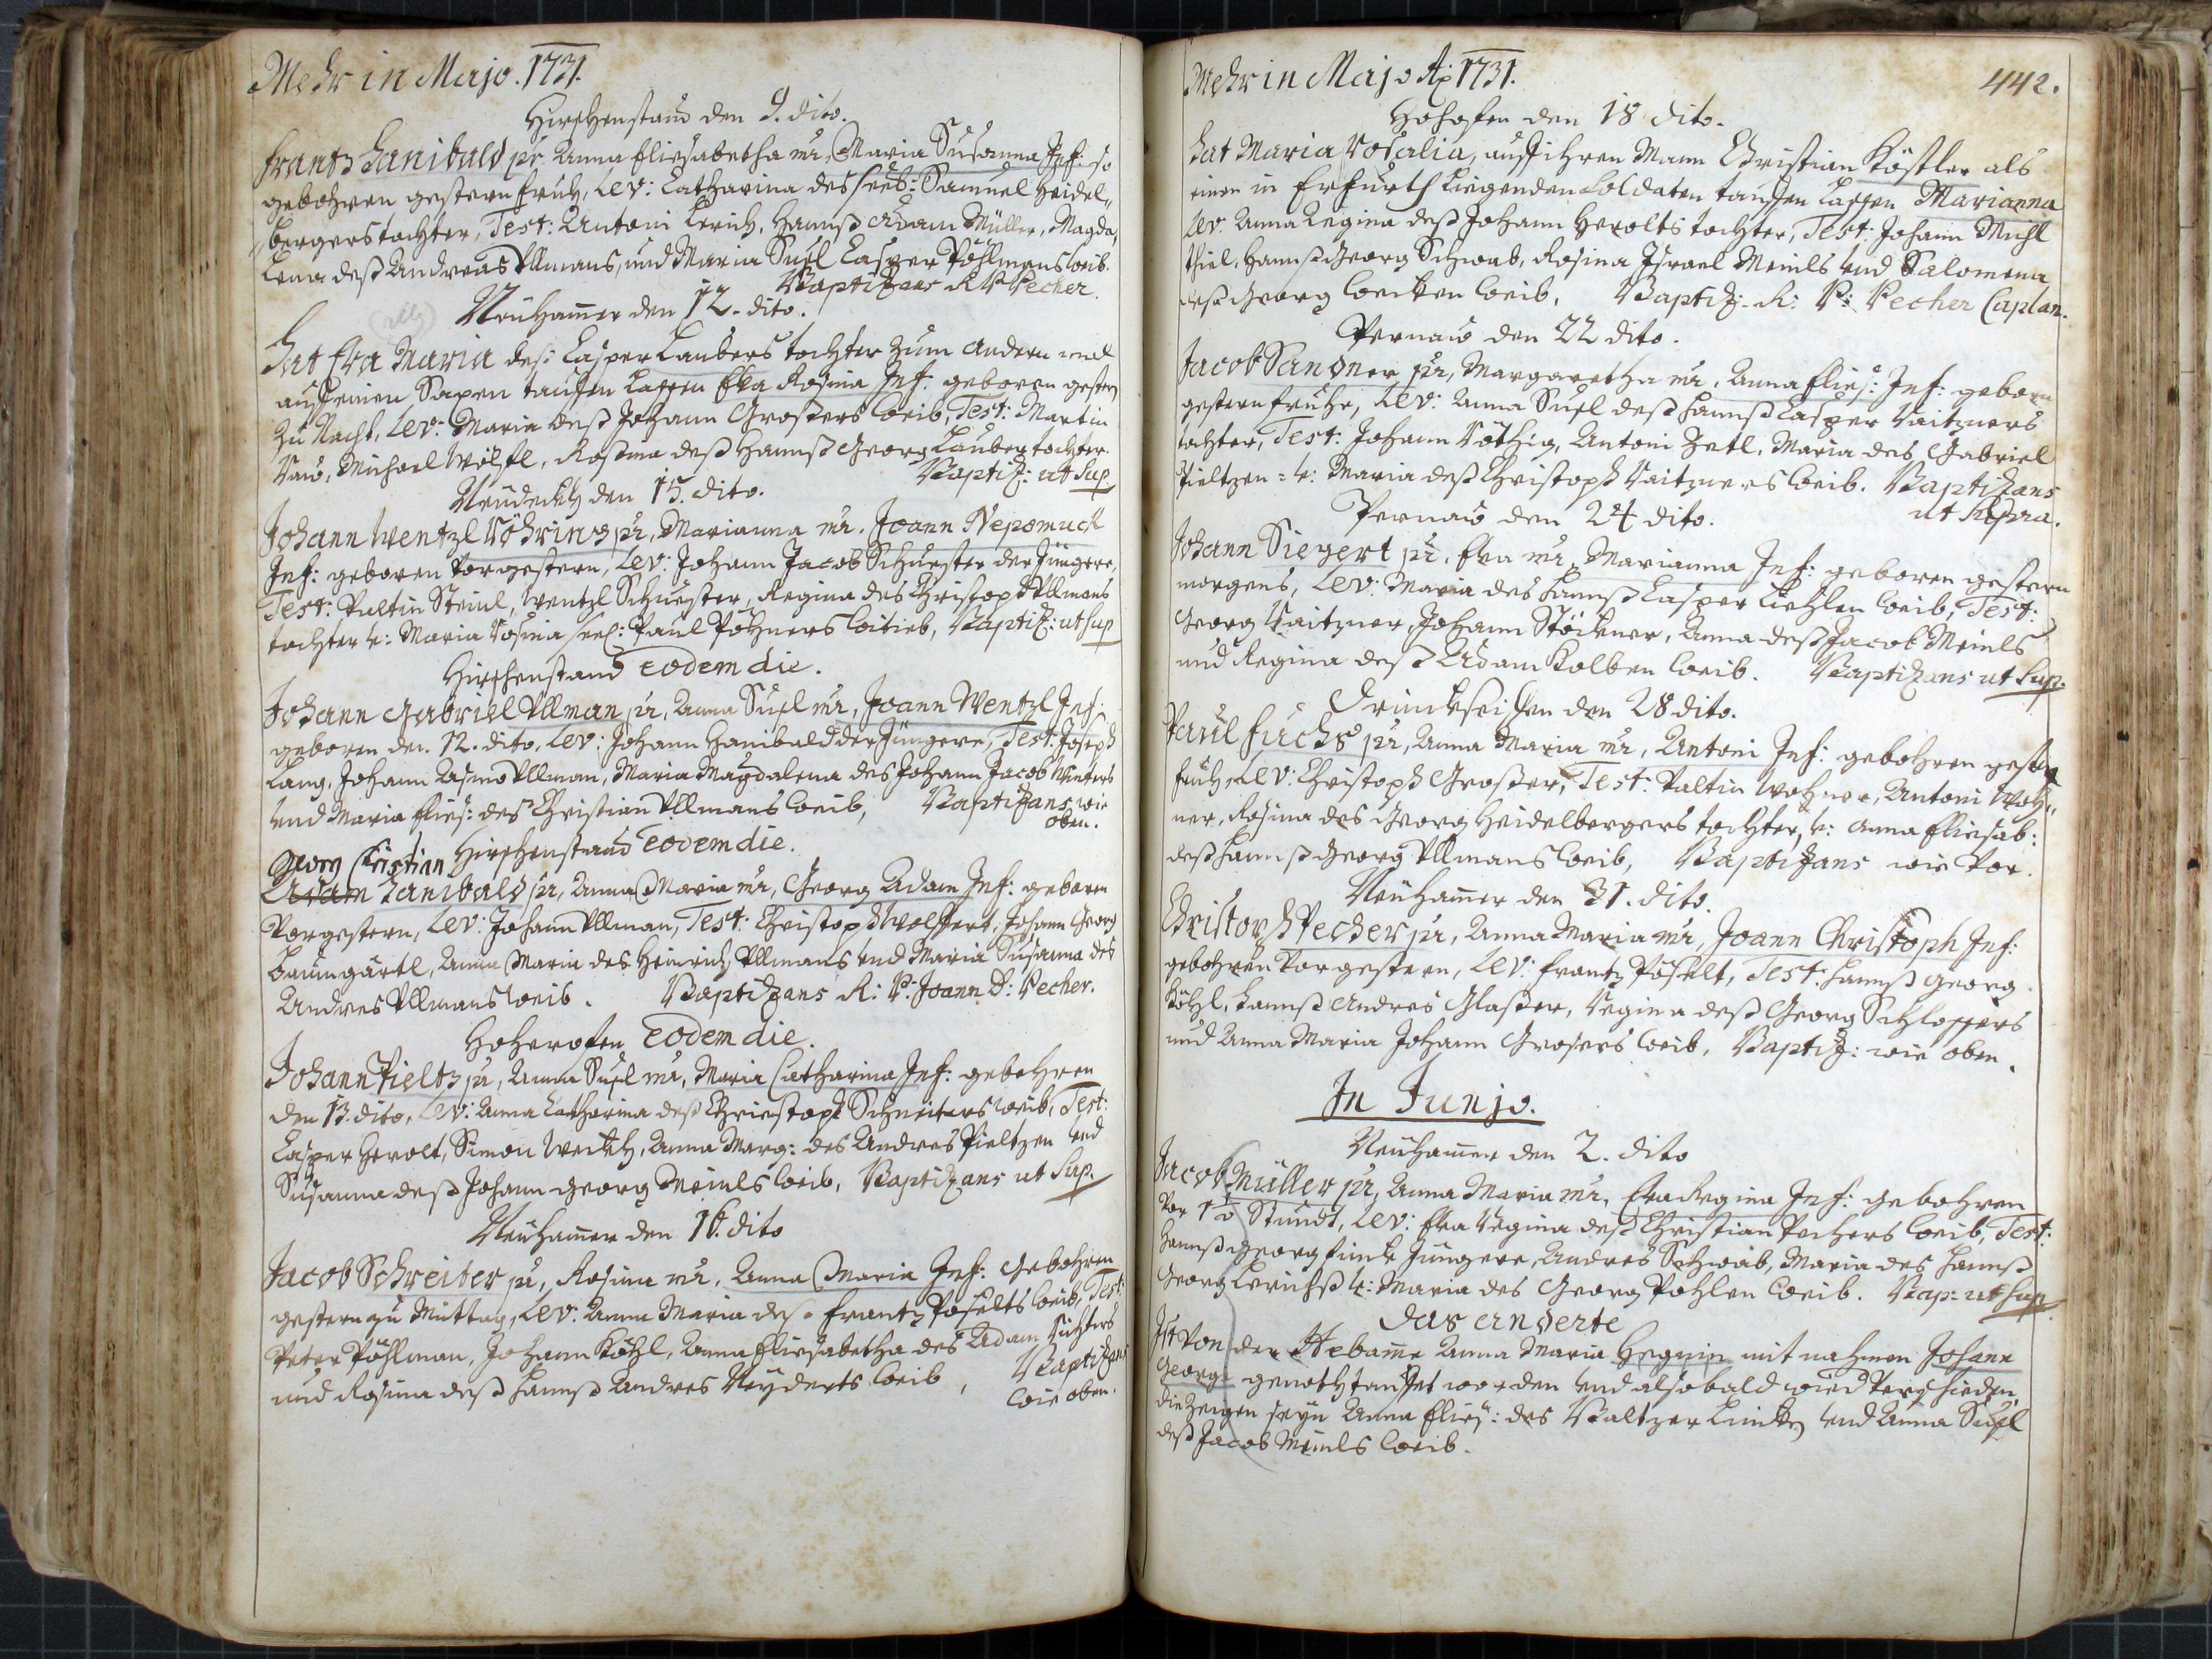 Mehr in Majo. 1731.
Hirschenstand den 9. dito.
Frantz Hanibald pr. Anna Eliesabetha mr, Maria Susanna Inf: so
gebohren gestern fruh, Lev: Catharina des seel: Samuel Heidel„
„bergers tochter, Test: Antoni Lerich, Hannß Adam Müller, Magda„
lena deß Andreas Ullmans, und Maria Susl Casper Pöhlmans weib.
Baptizans R P Pecher.
Neuhamer den 12. dito.
Hat Eva Maria des: Casper Laubers tochter zum andern mal
auß einen tauffen lassen Eva Rosina Inf: geboren gestern
zu Nacht, Lev: Maria deß Johann Großers weib, Test: Martin
Michael Wölfl, Rosina deß Hannß Georg Lauber tochter.
Baptiz: ut Sup.
Neudeckh den 15. dito.
Johann Wentzl Röhring pr, Marianna mr. Joann Nepomuck
Inf: geboren vorgestern, Lev: Johann Jacob Schuester der Jüngere,
Test: Valtin Steinl, Wentzl Schuester, Regina des Christoph Ullmans
tochter u: Maria Rosina seel: Paul Pöhners Baptiz: ut sup
Hirschenstand eodem die.
Johann Gabriel Ullman pr, Anna Susl mr, Joann Wentzl Inf:
geboren den. 12. dito, Lev: Johann Hanibald der Jüngere, Test: Joseph
Lang, Johann Ullman, Maria Magdalena des Johann Jacob
und Maria Elies: des Christian Ullmans weib, Baptizans wie
oben.
Hirschenstand eodem die.
Georg Christian
Adam Hanibald pr, Anna Maria mr, Georg Adam Inf: geboren
vorgestern, Lev: Johann Ullman, Test: Christoph Wolffert, Johann Georg
Baumgärtl, Anna Maria des Heinrich Ullmans und Maria Susanna des
Andres Ullmans weib. Baptizans R: P: Joann D: Pecher.
Hoherofen eodem die.
Johann Pieltz pr, Anna Susl mr, Maria Catharina Inf: gebohren
den 13. dito, Lev: Anna Catharina deß Christoph Schreiters weib, Test:
Casper Herolt, Simon Anna Marg: des Andres Pieltzen und
Susanna deß Johann Georg Meinls weib, Baptizans ut Sup.
Neuhamer den 16. dito
Jacob Schreiter pr, Rosina mr, Anna Maria Inf: gebohren
gestern zu Mittag, Lev: Anna Maria des Frantz Poselts weib, Test:
Peter Pöhlman, Johann Köhl, Anna Eliesabetha des Adam Richters
und Rosina deß Hannß Andres weib, Baptizans
wie oben.
Mehr in Majo Ao 1731.
442.
Hohofen den 18 dito.
Hat Maria Rosalia, auff ihren Mann Christian Köstler als
einen in Erfurth liegenden Soldaten tauffen lassen Marianna
Lev: Anna Regina deß Johann Herolts tochter, Test: Johann Michl
Thiel, Hannß Georg Schwab, Rosina Israel Meinls und Salomena
deß Georg weib, Baptiz: R: P: Pecher Caplan.
Pernau den 22 dito.
Jacob Sandner pr, Margaretha mr, Anna Elies: Inf: geborn
gestern fruhe, Lev: Anna Susl deß Hannß Casper Raitzners
tochter, Test: Johann Röthig, Antoni Zetl, Maria des Gabriel
Pieltzen u: Maria deß Christoph Raitzners weib. Baptizans
ut supra.
Pernau den 24 dito.
Johann Siegert pr, Eva mr, Marianna Inf: geboren gestern
morgens, Lev: Maria des Hannß Casper weib, Test:
Georg Raitzner, Johann Anna deß Jacob Meinls
und Regina deß Adam Kolben weib. Baptizans ut Sup.
Trinckseiffen den 28 dito.
Paul Fuchs pr, Anna Maria mr, Antoni Inf: gebohren gestern
fruh, Lev: Christoph Großer, Test: Valtin Wohner, Antoni Woh„
ner, Rosina des Georg Heidelbergers tochter, u: Anna Eliesab:
deß Hannß Georg Ullmans weib, Baptizans wie vor.
Neuhamer den 31. dito.
Christoph Pecher pr, Anna Maria mr, Joann Christoph Inf:
gebohren vorgestern, Lev: Frantz Poselt, Test: Hannß Georg
Köhl, Hannß Andres Glaßer, Regina deß Georg Schlossers
und Anna Maria Johann Grosers weib, Baptiz: wie oben.
In Junjo.
Neuhamer den 2. dito
Jacob Müller pr, Anna Maria mr, Eva Regina Inf: gebohren
vor Stundt, Lev: Eva Regina deß Christian Pechers weib, Test:
Hannß Georg Jungere, Andres Schwab, Maria des Hannß
Georg u: Maria des Georg Pohlen weib. Bap: ut sup
das anderte
Ist von der Hebame Anna Maria mit nahmen Johann
Georg genothtauffet worden und alsobald wied verschieden
die Zeugen seyn Anna Elies: des Baltzer und Anna Susl
deß Jacob Meinls weib.